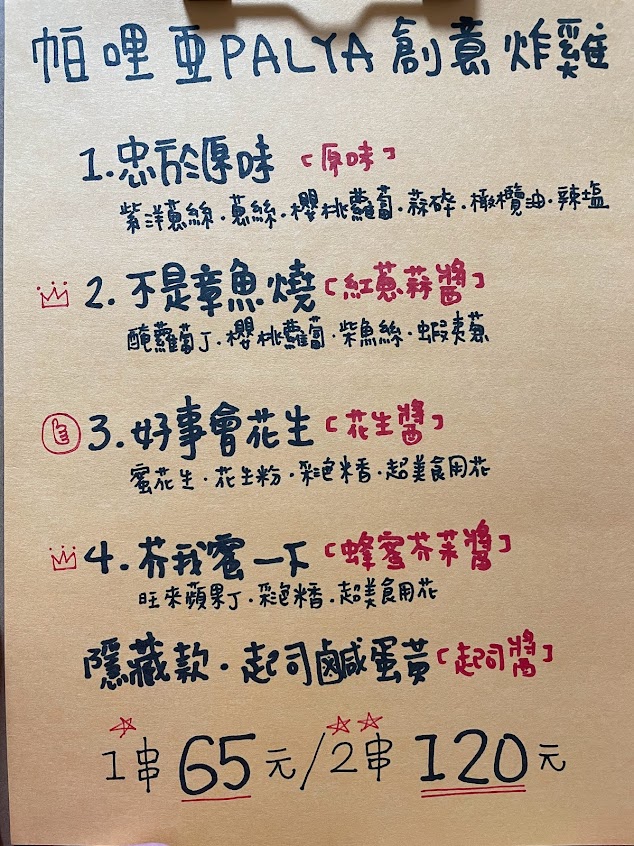 帕哩亞PALYA創意炸雞
1.忠於原味「原味」
紫洋蔥絲.蔥絲.櫻桃蘿蔔.蒜碎.橄欖油.辣塩
2.不是章魚燒「紅蔥蒜醬」
醃蘿蔔丁.櫻桃蘿蔔.柴魚絲.蝦夷蔥
3.好事會花生「花生醬」
蜜花生.花生粉.彩色米香.超美食用花
4.芥我蜜一下「蜂蜜芥茉醬」
旺來蘋果丁.彩色米香.超美食用花
隱藏款.起司鹹蛋黃「起司醬」
1串65元/2串120元